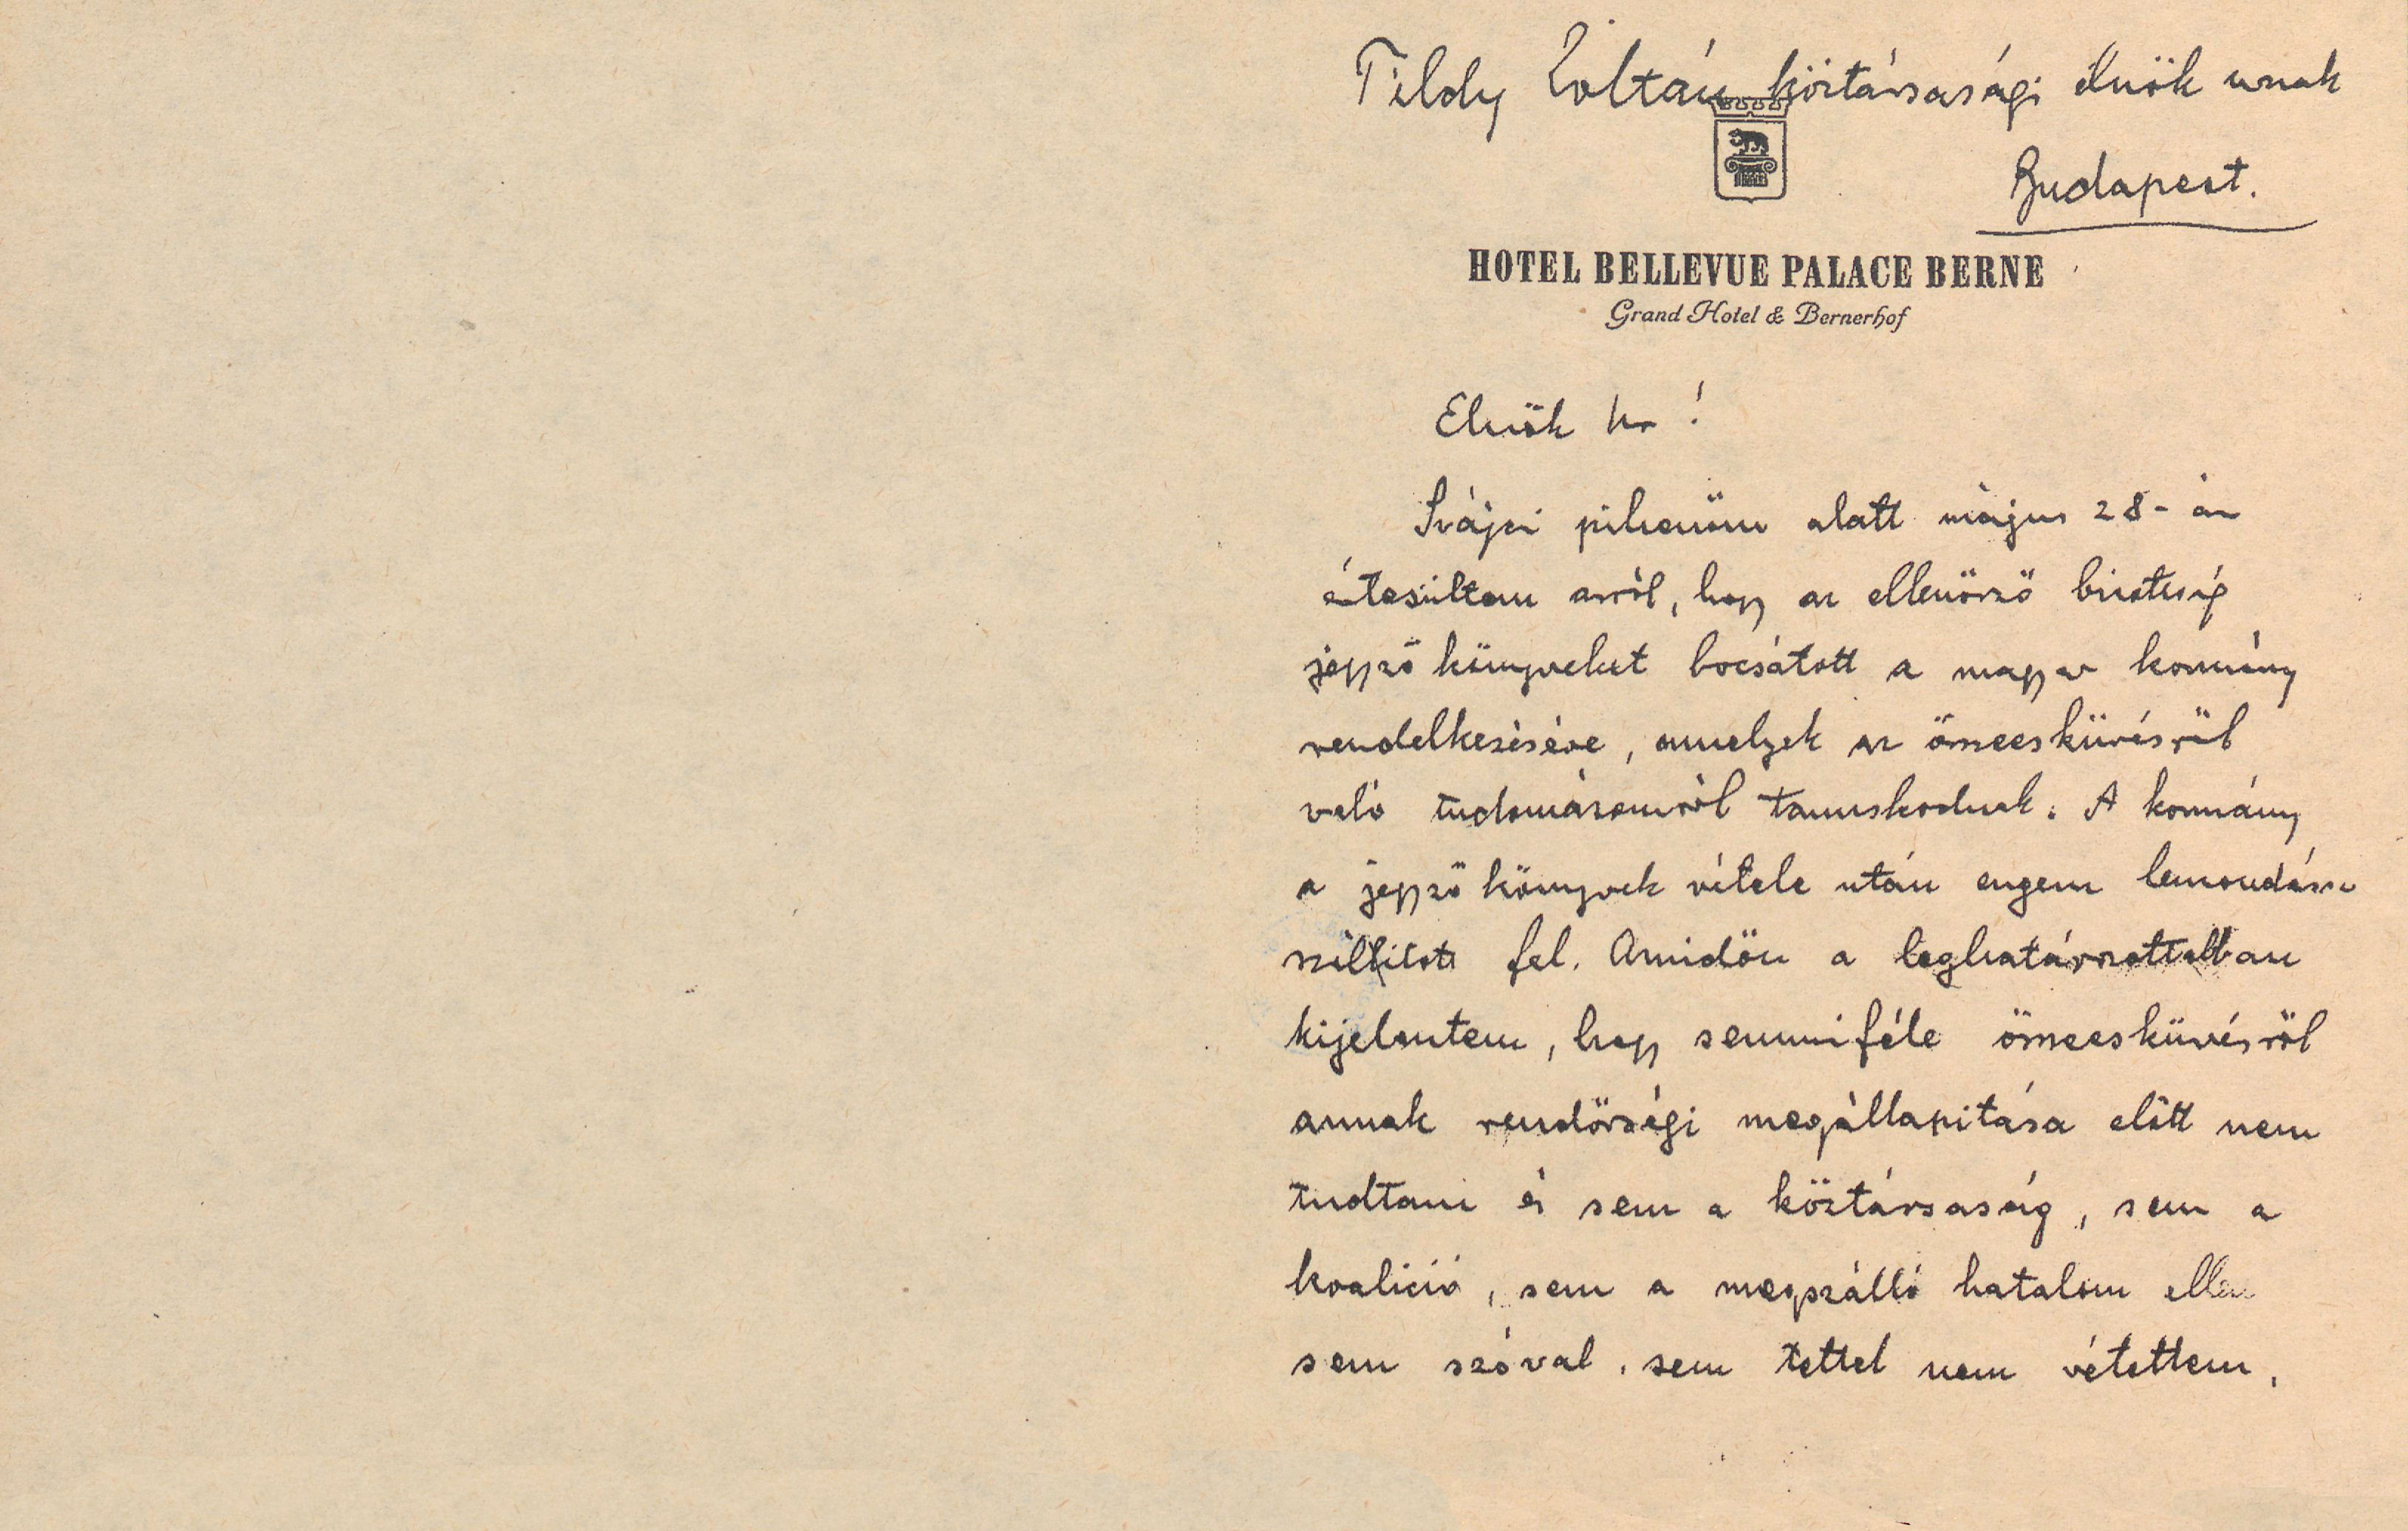 Tildy Zoltán köztársasági elnök urnak
Budapest.
HOTEL BELLEVUE PALACE BERNE
Grand Hotel & Bernerhof
Elnök ur!
Svájci pihenőm alatt május 28-án
értesültem arról, hogy az ellenőrző bizottság
jegyzőkönyveket bocsátott a magyar kormány
rendelkezésére, amelyek az összeesküvésről
való tudomásomról tanuskodnak. A kormány
a jegyzőkönyvek vétele után engem lemondásra
szóllitott fel. Amidőn a leghatározottabban
kijelentem, hogy semmiféle összeesküvésről
annak rendőrségi megállapitása előtt nem
tudtam és sem a köztársaság, sem a
koalició, sem a megszálló hatalom ellen
sem szóval, sem tettel nem vétettem,